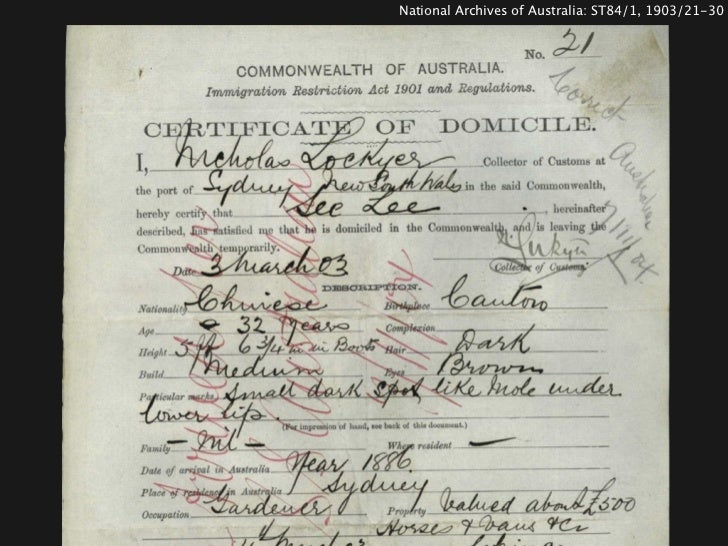 National Archives of Australia: ST84/1, 1903/21-30
No. 21
COMMONWEALTH OF AUSTRALIA.
Immigration Restriction Act 1901 and Regulations.
Correct
CERTIFICATE OF DOMICILE.
I, Nicholas Lockyer Collector of Customs at
the port of Sydney New South Wales in the said Commonwealth,
hereby certify that See Lee, hereinafter
described, has satisfied me that he is domiciled in the Commonwealth, and is leaving the
Commonwealth temporarily.
N. Lockyer
Date 3 March 03 Collector of Customs.
DESCRIPTION.
Nationality Chinese Birthplace Canton
Age 32 Years Complexion
Height 5 ft 6 3/4 in in Boots Hair Dark
Build Medium Eyes Brown
Particular marks Small dark spot like Mole under
lower lip.
(For impression of hand, see back of this document.)
Family - Nil - Where resident —
Date of arrival in Australia Year 1886
Place of residence in Australia Sydney
Occupation Gardener Property Valued about £500
Horses & Vans &c